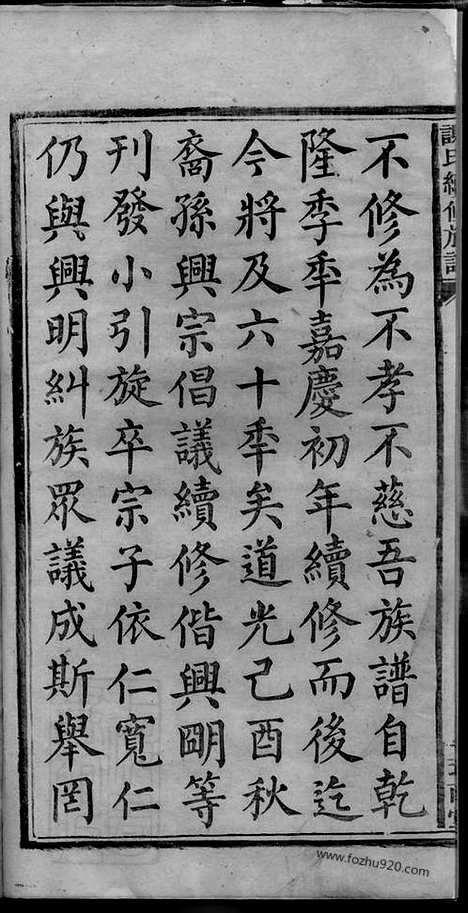 不修為不孝不慈吾族譜自乾
隆季秊嘉慶初年續修而後迄
今將及六十秊矣道光己酉秋
裔孫興宗倡議續修偕興明等
刊發小引旋卒宗子依仁寬仁
仍與興明糾族眾議成斯舉罔
氏續修族譜
www.fozhu920.com